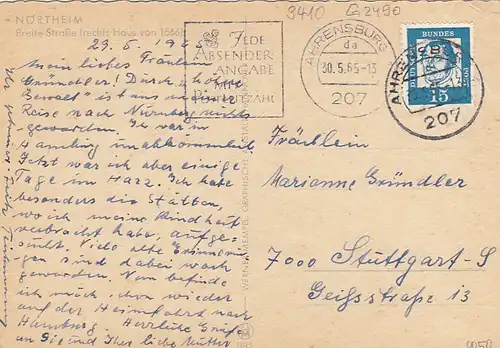 3410 G2490
NORTHEIM
Breite Straße (rechts Haus von 1566)
23.5.19
Mein liebes Fräulein
Gründler! Durch "höhere
Gewalt" ist aus meiner
Reise nach Nürnberg nichts
geworden. Ich war in
Hamburg unabkömmlich.
Jetzt war ich aber einige
Tage im Harz. Ich habe
besonders die Stätten,
wo ich meine Kindheit
verbracht habe, aufge-
sucht. Viele alte Erinnerun-
gen sind dabei wach
geworden. Nun befinde
ich mich schon wieder
auf der Heimfahrt nach
Hamburg. Herzliche Grüße
an Sie und Ihre liebe Mutter
Ihr
JEDE
ABSENDER-
ANGABE
MIT
POSTLEITZAHL
AHRENSBURG
da
30.5.65-13
207
DEUTSCHE BUNDESPOST
15
AHRENSBURG
207
Fräulein
Marianne Gründler
7000 Stuttgart-S
Geißstraße 13